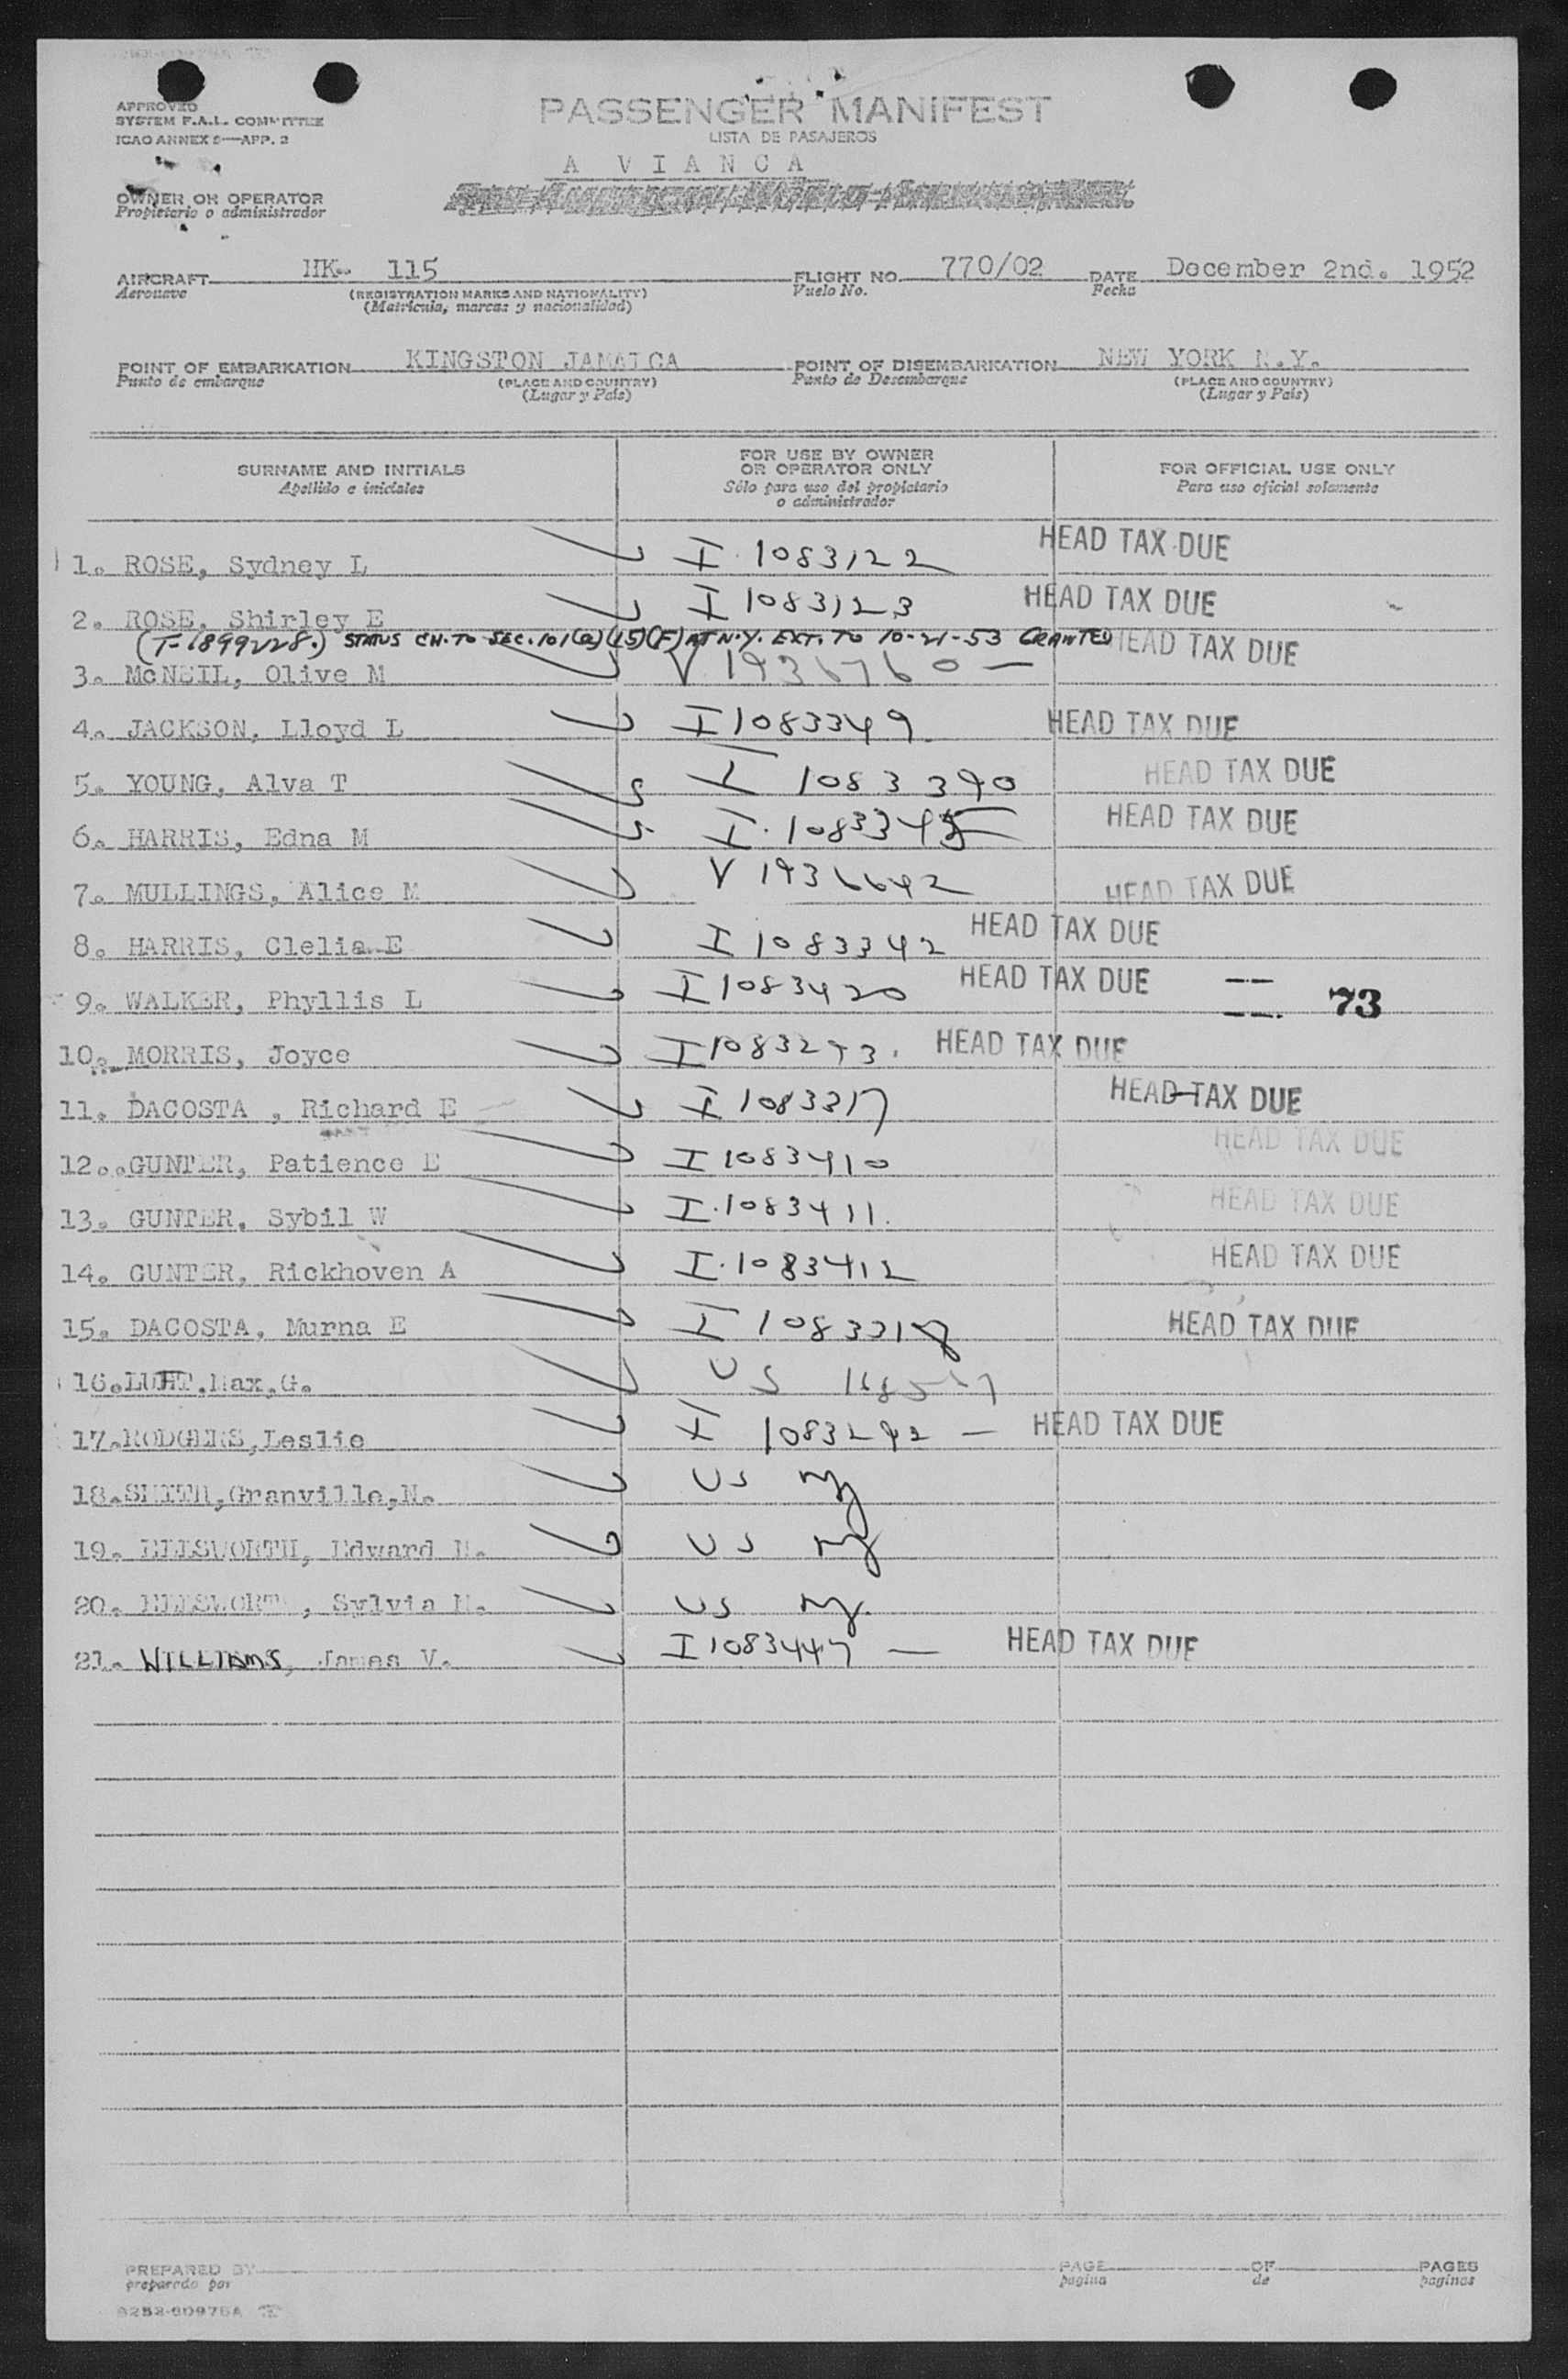 APPROVED
SYSTEM F.A.L. COMMITTEE
ICAO ANNEX 9—APP. 2
PASSENGER MANIFEST
LISTA DE PASAJEROS
A V I A N C A
OWNER OR OPERATOR
Propietario o administrador
AIRCRAFT HK- 115 FLIGHT NO. 770/02 DATE December 2nd. 1952
Aeronave (REGISTRATION MARKS AND NATIONALITY) Vuelo No. Fecha
(Matrícula, marcas y nacionalidad)
POINT OF EMBARKATION KINGSTON JAMAICA POINT OF DISEMBARKATION NEW YORK N.Y.
Punto de embarque (PLACE AND COUNTRY) Punto de Desembarque (PLACE AND COUNTRY)
(Lugar y País) (Lugar y País)
SURNAME AND INITIALS FOR USE BY OWNER OR OPERATOR ONLY FOR OFFICIAL USE ONLY
Apellido e iniciales Sólo para uso del propietario o administrador Para uso oficial solamente
1. ROSE, Sydney L I.1083122 HEAD TAX DUE
2. ROSE, Shirley E I 1083123 HEAD TAX DUE
(T-1899228.) STATUS CH. TO SEC. 101(a)(15)(F) AT N.Y. EXT. TO 10-21-53 GRANTED HEAD TAX DUE
3. McNEIL, Olive M V 1936760 —
4. JACKSON, Lloyd L I 1083349 HEAD TAX DUE
5. YOUNG, Alva T I 1083390 HEAD TAX DUE
6. HARRIS, Edna M I.1083345 HEAD TAX DUE
7. MULLINGS, Alice M V 1936642 HEAD TAX DUE
8. HARRIS, Clelia E I 1083342 HEAD TAX DUE
9. WALKER, Phyllis L I 1083420 HEAD TAX DUE 73
10. MORRIS, Joyce I 1083293. HEAD TAX DUE
11. DACOSTA , Richard E I 1083317 HEAD TAX DUE
12. GUNTER, Patience E I 1083410 HEAD TAX DUE
13. GUNTER, Sybil W I.1083411. HEAD TAX DUE
14. GUNTER, Rickhoven A I.1083412 HEAD TAX DUE
15. DACOSTA, Murna E I 1083318 HEAD TAX DUE
16. Max,G. US
17.RODGERS,Leslie I 1083292 — HEAD TAX DUE
18.SMITH,Granville,N. US ny
19. ELLSWORTH, Edward US ny
20. ELLSWORTH, Sylvia M. US ny.
21. WILLIAMS, James V. I 1083447 — HEAD TAX DUE
PREPARED BY PAGE OF PAGES
preparado por pagina de paginas